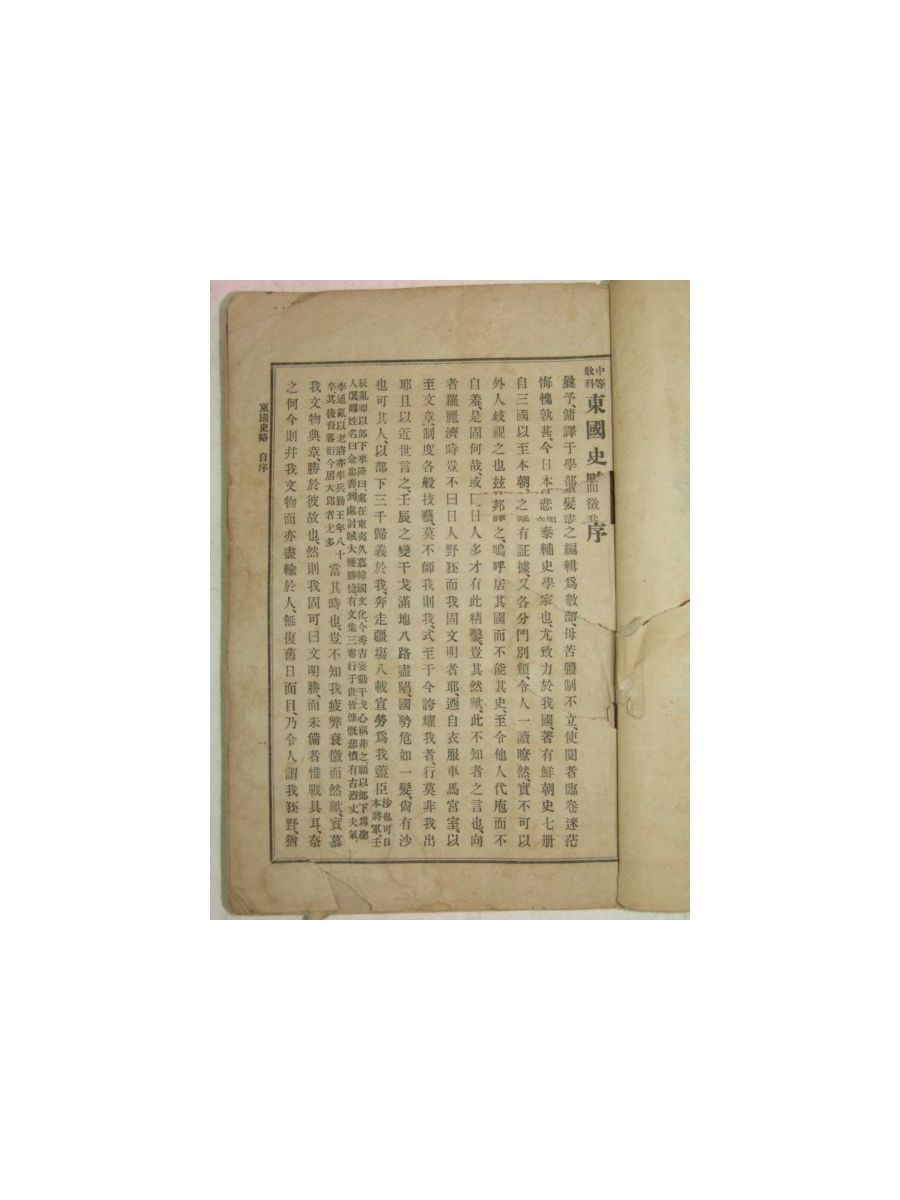 中等教科 東國史 序
曩予備譯于學部 髮 之編輯爲數 毋苦體制不立、使閱者臨卷迷茫
悔愧孰甚、今日本 泰輔史學家也、尤致力於我國、著有鮮朝史七册
自三國以至本朝、之 有証據、又各分門別類、令人一讀瞭然、實不可以
外人歧視之也玆 邦 之、嗚呼居其國而不能其史、至令他人代庖而不
自羞、是固何哉、或曰日人多才有此精鑿、豈其然歟、此不知者之言也、向
者羅麗濟時豈不曰日人野狉而我固文明者耶、迺自衣服車馬宮室、以
至文章、制度各般技藝、莫不師我則我、式至于今誇耀我者、行莫非我出
耶且以近世言之、壬辰之變干戈滿地八路盡陷、國勢危如一髮、尙有沙
也可其人、以部下三千歸義於我、奔走疆場八載宣勞爲我藎臣沙也可日本將軍、壬
辰亂卽以部下來降曰、處在東夷久慕韓國文化、今秀吉妄動干戈心竊非之、願以部下爲
人 賜姓名曰金忠善、到處討賊大獲勝捷有文集三卷行于世皆慷慨悲憤有古烈丈夫氣、
李适亂、以老將亦率兵勤王年八十
卒、其後裔蕃衍今居大邱者尤多
當其時也、豈不知我疲弊衰微而然歟、實慕
我文物典章、勝於彼故也、然則我固可曰文明勝、而未備者惟戰具耳、奈
之何今則幷我文物而亦盡輸於人、無復舊日面目、乃令人謂我狉野、猶
東國史略 自序